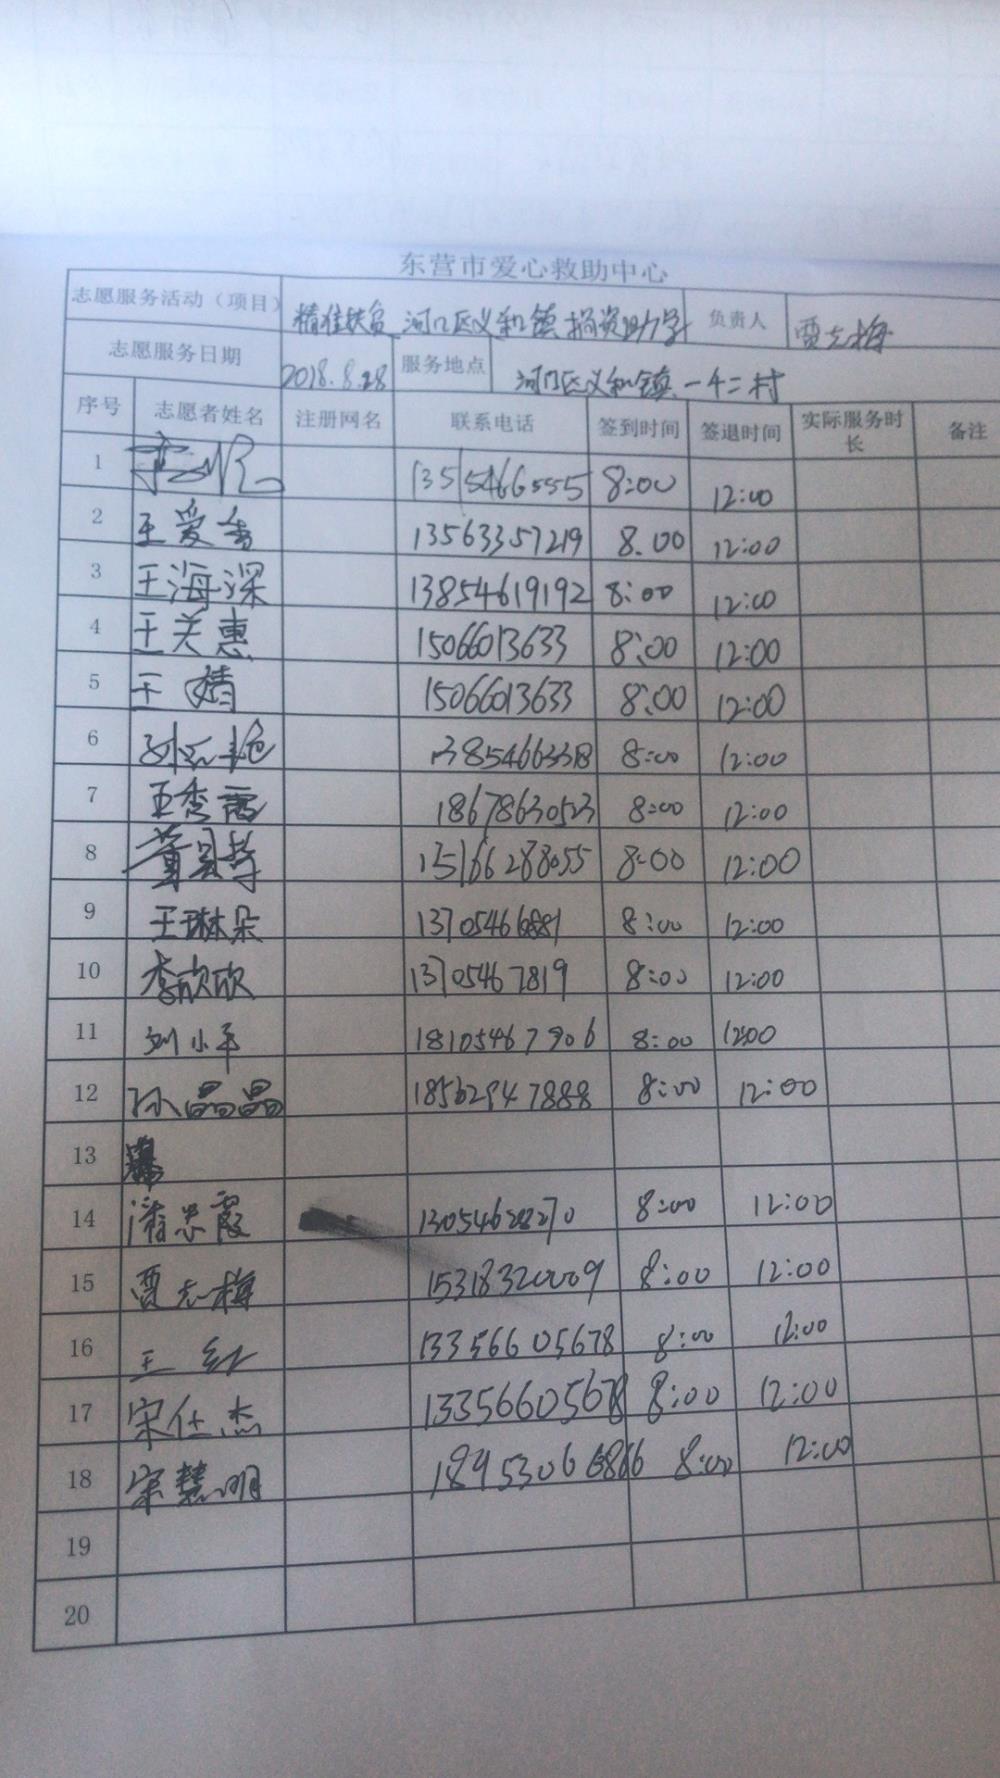 东营市爱心救助中心
志愿服务活动（项目） 精准扶贫 河口区义和镇捐资助学 负责人 贾志梅
志愿服务日期 2018.8.28 服务地点 河口区义和镇 一千二村
序号 志愿者姓名 注册网名 联系电话 签到时间 签退时间 实际服务时长 备注
1 13515466555 8:00 12:00
2 王爱香 13563357219 8.00 12:00
3 王海深 13854619192 8:00 12:00
4 王关惠 15066013633 8:00 12:00
5 王 婧 15066013633 8:00 12:00
6 8:00 12:00
7 王秀霞 18678630523 8:00 12:00
8 15166288055 8:00 12:00
9 王琳朵 13705466881 8:00 12:00
10 李欣欣 13705467819 8:00 12:00
11 刘小平 18105467906 8:00 12:00
12 孙晶晶 18562947888 8:00 12:00
13
14 潘忠霞 8:00 12:00
15 贾志梅 15318320009 8:00 12:00
16 王 红 13356605678 8:00 12:00
17 宋仕杰 13356605678 8:00 12:00
18 宋慧明 8:00 12:00
19
20